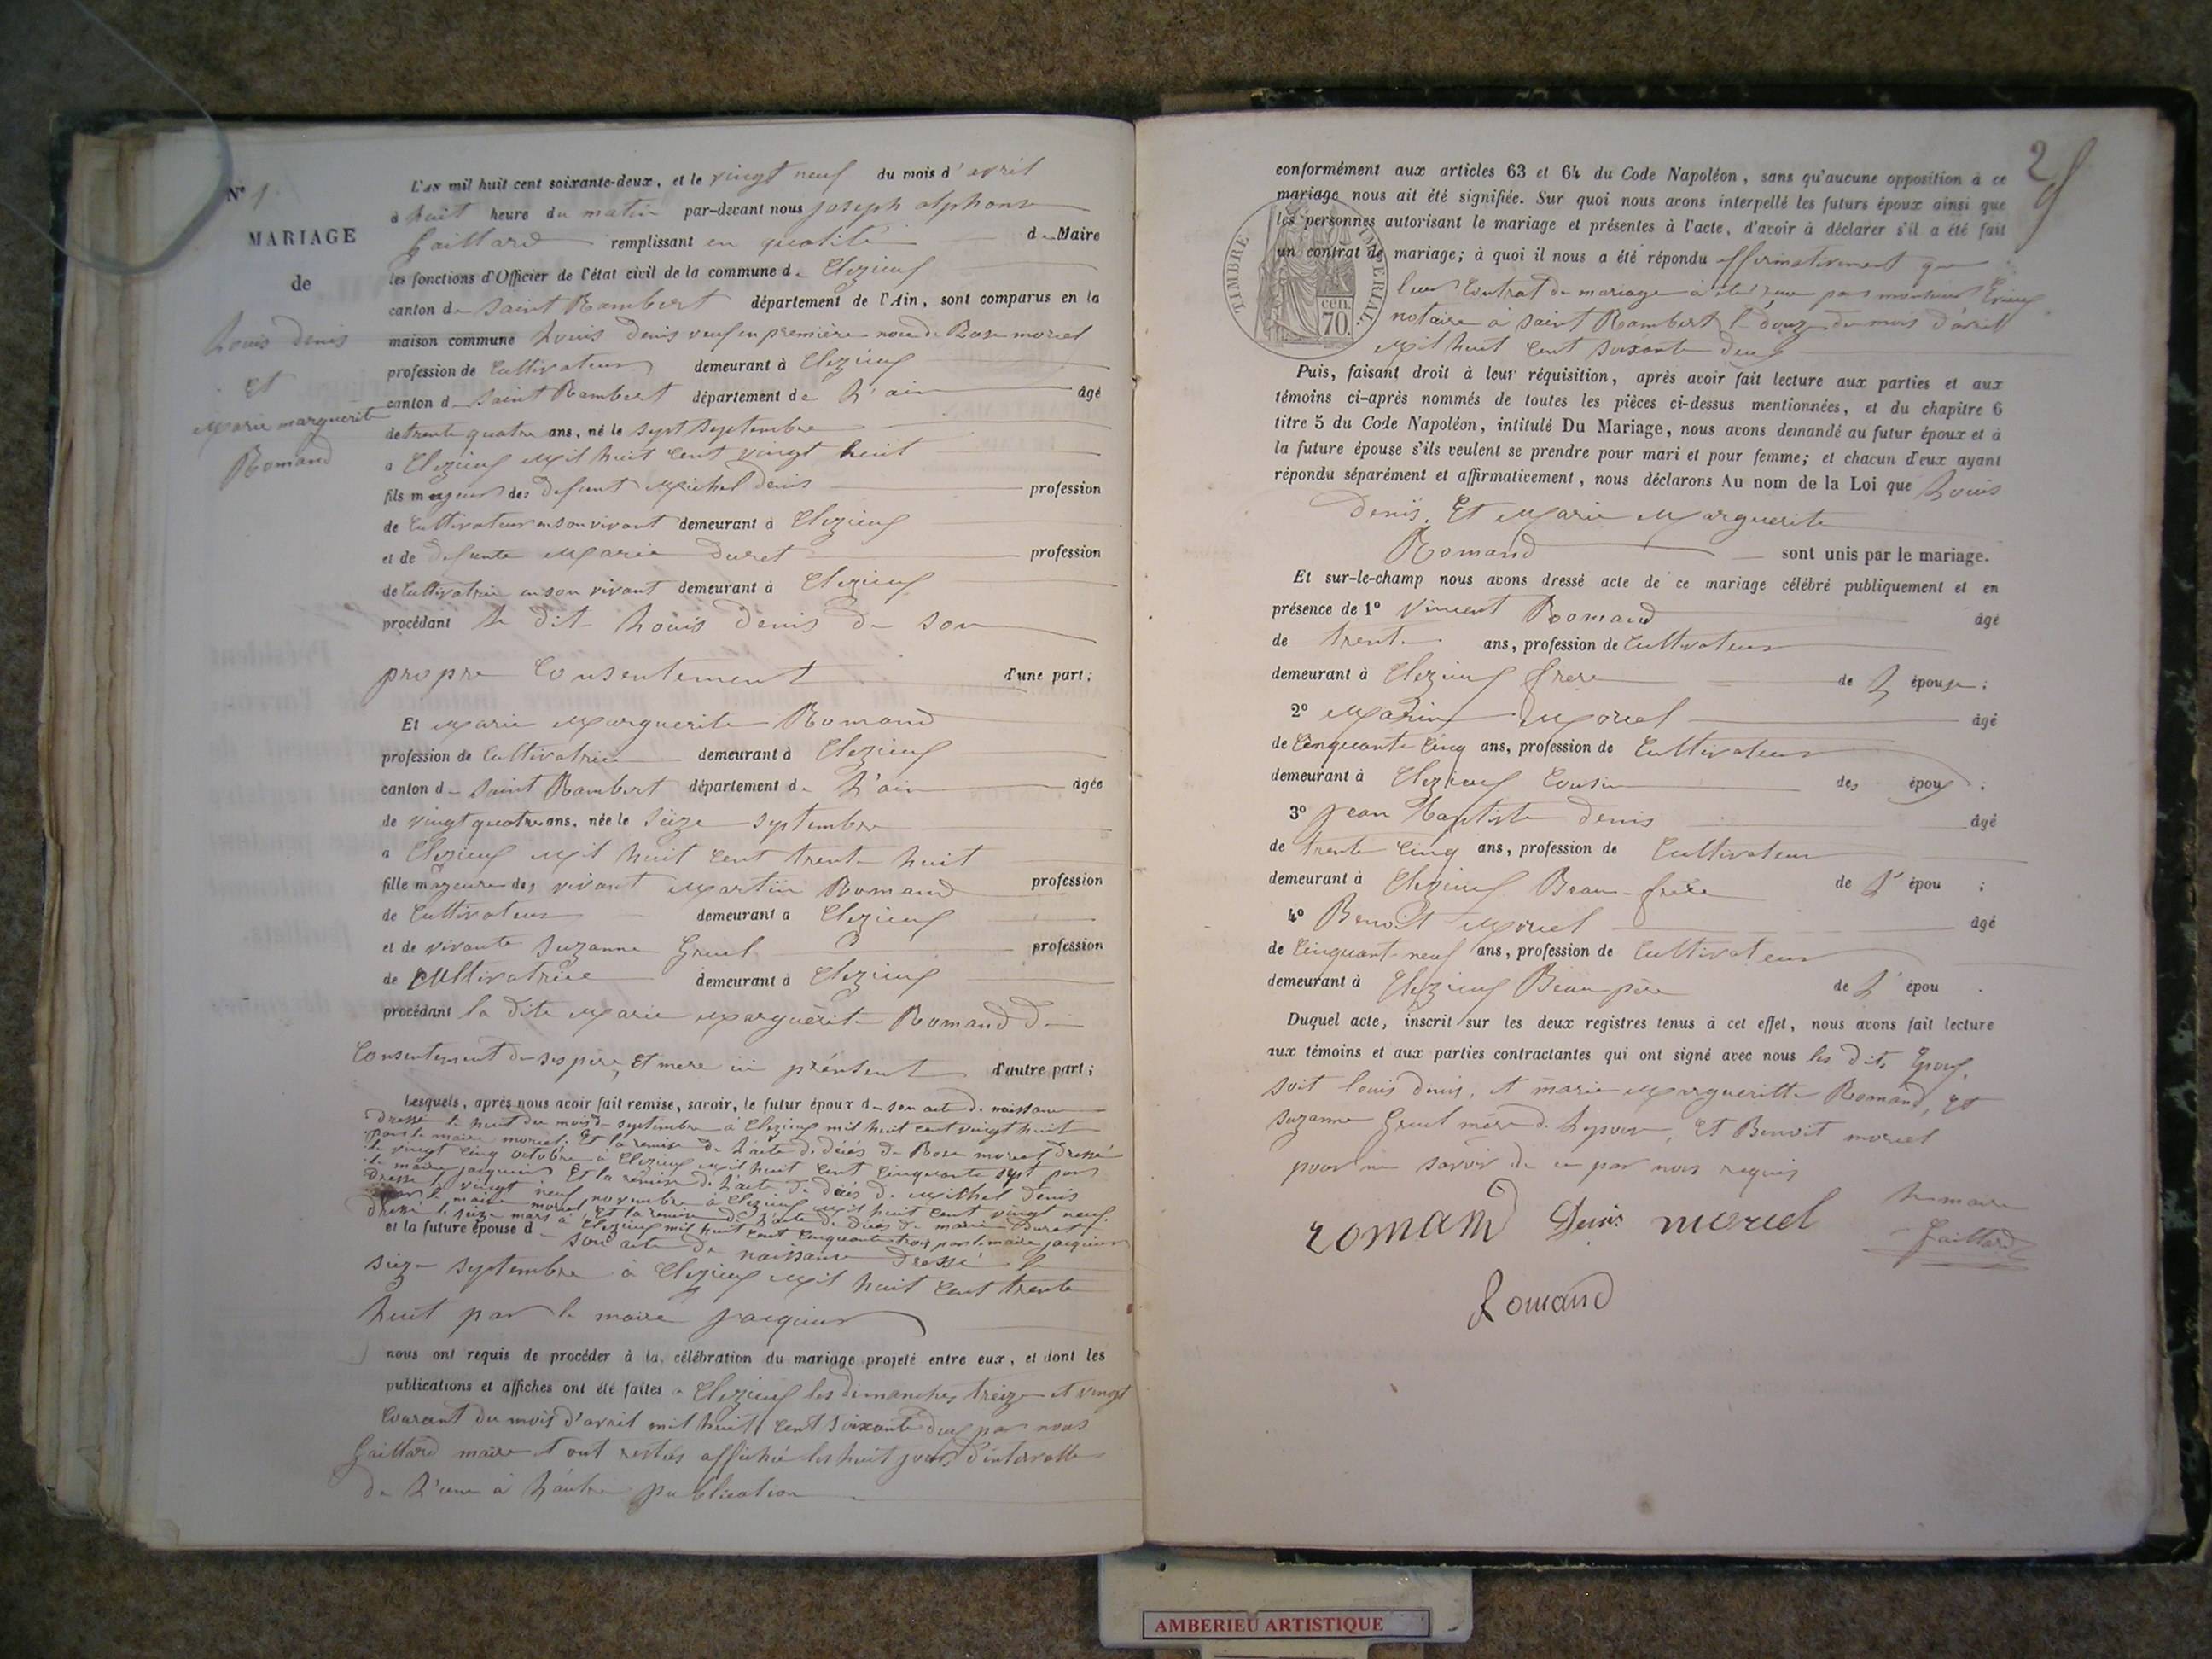 N° 1
MARIAGE
de
Louis denis
et
Marie marguerite
Romand
L'AN mil huit cent soixante-deux, et le vingt neuf du mois d'avril
à huit heure du matin par-devant nous joseph alphonse
Gaillard remplissant en qualité de Maire
les fonctions d'Officier de l'état civil de la commune de Clezieux
canton de Saint Rambert département de l'Ain, sont comparus en la
maison commune Louis denis veuf en première noce de Rose moriel
profession de Cultivateur demeurant à Clezieux
canton de Saint Rambert département de L'ain âgé
de trente quatre ans, né le sept septembre
a Clezieux Mil huit Cent vingt huit
fils majeur des defunt Michel denis profession
de Cultivateur en son vivant demeurant à Clezieux
et de defunte Marie duret profession
de Cultivatrice en son vivant demeurant à Clezieux
procédant le dit Louis denis de son
propre Consentement d'une part;
Et Marie Marguerite Romand
profession de Cultivatrice demeurant à Clezieux
canton de Saint Rambert département de L'ain agée
de vingt quatre ans, née le Seize septembre
a Clezieux Mil huit Cent trente huit
fille majeure des vivant Martin Romand profession
de Cultivateur demeurant a Clezieux
et de vivante Suzanne Gruel profession
de Cultivatrice demeurant à Clezieux
procédant la dite Marie Marguerite Romand du
Consentement de ses pere et mere ici présent d'autre part;
Lesquels, après nous avoir fait remise, savoir, le futur époux de son acte de naissance
dressé le huit du mois de septembre à Clezieux mil huit cent vingt huit
par le maire moriel. Et la remise de L'acte de décés de Rose moriel dressé
le vingt cinq octobre à Clezieux Mil huit Cent Cinquante sept par
le maire jacquier Et la remise de L'acte de décés de Michel denis
dressé le vingt neuf novembre à Clezieux Mil huit Cent vingt neuf
par le maire moriel, Et la remise de L'acte de décés de marie duret
dressé le seize mars à Clezieux mil huit Cent Cinquante trois par le maire jacquier
et la future épouse de son acte de naissance dressé le
seize septembre à Clezieux Mil huit Cent trente
huit par le maire jacquier
nous ont requis de procéder à la célébration du mariage projeté entre eux, et dont les
publications et affiches ont été faites a Clezieux les dimanches treize et vingt
Courant du mois d'avril mil huit Cent soixante deux par nous
Gaillard maire et ont restés affiché les huit jours d'intervalle
de L'une à L'autre publication
2
conformément aux articles 63 et 64 du Code Napoléon, sans qu'aucune opposition à ce
mariage nous ait été signifiée. Sur quoi nous avons interpellé les futurs époux ainsi que
les personnes autorisant le mariage et présentes à l'acte, d'avoir à déclarer s'il a été fait
un contrat de mariage; à quoi il nous a été répondu affirmativement que
leur Contrat de mariage à été reçu par monsieur
notaire à Saint Rambert le douze du mois d'avril
Mil huit Cent soixante deux
TIMBRE IMPERIAL
70 cen.
Puis, faisant droit à leur réquisition, après avoir fait lecture aux parties et aux
témoins ci-après nommés de toutes les pièces ci-dessus mentionnées, et du chapitre 6
titre 5 du Code Napoléon, intitulé Du Mariage, nous avons demandé au futur époux et à
la future épouse s'ils veulent se prendre pour mari et pour femme; et chacun d'eux ayant
répondu séparément et affirmativement, nous déclarons Au nom de la Loi que Louis
Denis. Et Marie Marguerite
Romand sont unis par le mariage.
Et sur-le-champ nous avons dressé acte de ce mariage célébré publiquement et en
présence de 1° Vincent Romand âgé
de trente ans, profession de Cultivateur
demeurant à Clezieux frere de L épouse;
2° Moriel âgé
de Cinquante Cinq ans, profession de Cultivateur
demeurant à Clezieux Cousin des époux;
3° Jean Baptiste denis âgé
de trente Cinq ans, profession de Cultivateur
demeurant à Clezieux Beau-frère de L' épou;
4° Benoît Moriel âgé
de Cinquante neuf ans, profession de Cultivateur
demeurant à Clezieux Beau père de L' épou.
Duquel acte, inscrit sur les deux registres tenus à cet effet, nous avons fait lecture
aux témoins et aux parties contractantes qui ont signé avec nous les dits Epoux,
soit louis denis, et marie Margueritte Romand, et
Suzanne Gruel mère de lepouse, Et Benoit moriel
pour ne savoir de ce par nous requis
romand Denis moriel
Le maire
Gaillard
Romand
AMBERIEU ARTISTIQUE